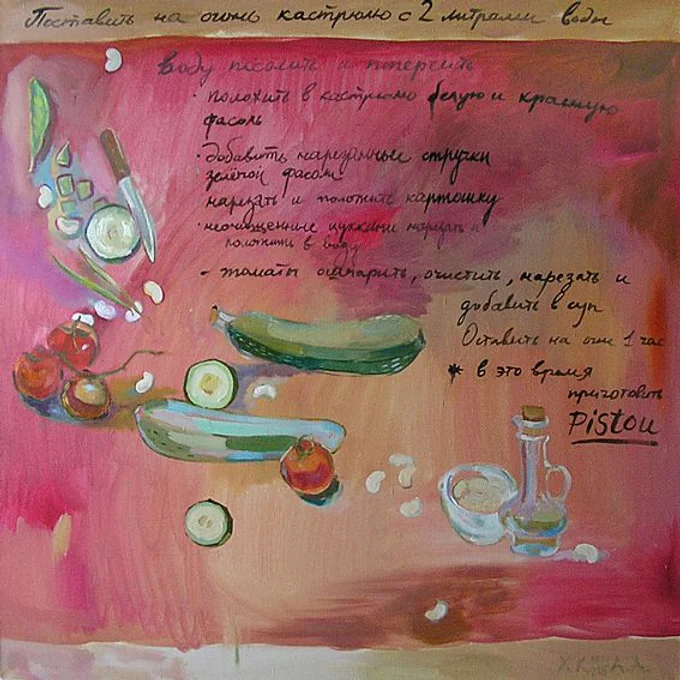 Поставить на огонь кастрюлю с 2 литрами воды
воду посолить и поперчить
• положить в кастрюлю белую и красную
фасоль
• добавить нарезанные стручки
зелёной фасоли
нарезать и положить картошку
• неочищенные цуккини нарезать и
положить в воду
- томаты ошпарить, очистить, нарезать и
добавить в суп
Оставить на огне 1 час
* в это время
приготовить
Pistou